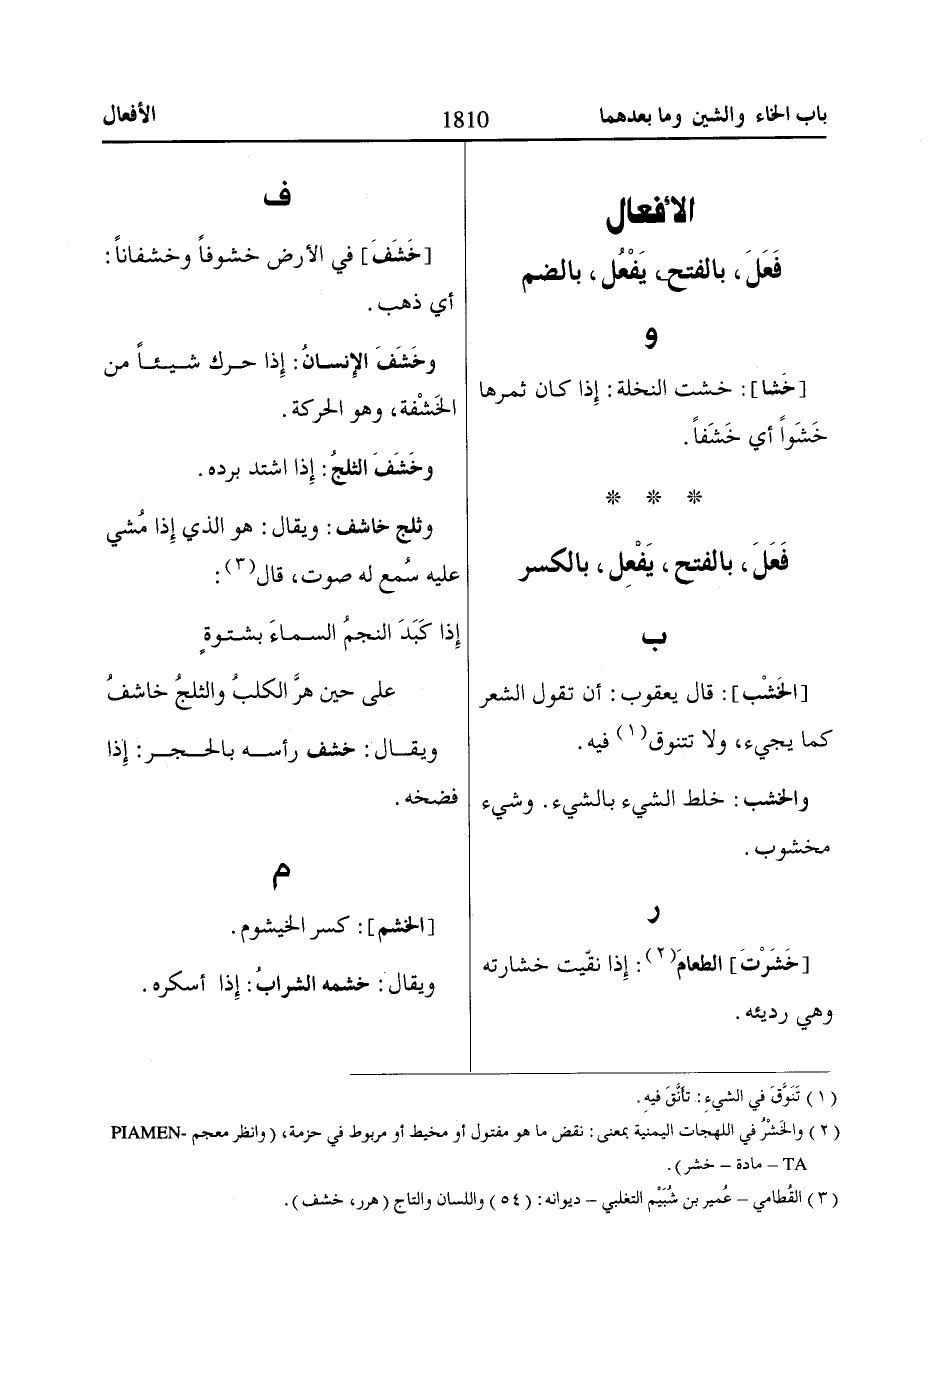 باب الخاء والشين وما بعدهما
1810
الأفعال
الأفعال
فَعَلَ، بالفتح، يَفْعُل، بالضم
و
[خَشا]: خشت النخلة: إذا كان ثمرها
خَشَواً أي خَشَفاً.
* * *
فَعَلَ، بالفتح، يَفْعِل، بالكسر
ب
[الخَشْب]: قال يعقوب: أن تقول الشعر
كما يجيء، ولا تتنوق(١) فيه.
والخشب: خلط الشيء بالشيء. وشيء
مخشوب.
ر
[خَشَرْتَ] الطعامَ(٢): إذا نقّيت خشارته
وهي رديئه.
ف
[خَشَفَ] في الأرض خشوفاً وخشفاناً:
أي ذهب.
وخَشَفَ الإنسانُ: إذا حرك شيئاً من
الخَشْفة، وهو الحركة.
وخَشَفَ الثلجُ: إذا اشتد برده.
وثلج خاشف: ويقال: هو الذي إذا مُشي
عليه سُمع له صوت، قال(٣):
إذا كَبَدَ النجمُ السماءَ بشتوةٍ
على حين هرَّ الكلبُ والثلجُ خاشفُ
ويقال: خشف رأسه بالحجر: إذا
فضخه.
م
[الخشم]: كسر الخيشوم.
ويقال: خشمه الشرابُ: إذا أسكره.
(١) تَنَوَّقَ في الشيءِ: تأنَّقَ فيهِ.
(٢) والخَشْرُ في اللهجات اليمنية بمعنى: نقض ما هو مفتول أو مخيط أو مربوط في حزمة، (وانظر معجم PIAMEN-
TA – مادة – خشر).
(٣) القُطامي – عُمير بن شُيَيْم التغلبي – ديوانه: (٥٤) واللسان والتاج (هرر، خشف).